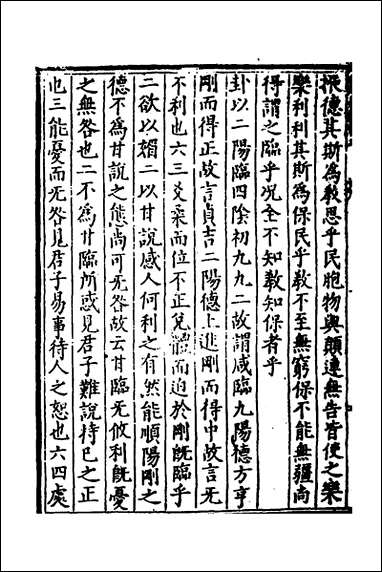 振德其斯為敎思乎民胞物與顛連無告皆使之樂
樂利利其斯為保民乎敎不至無窮保不能無疆尚
得謂之臨乎況全不知敎知保者乎
卦以二陽臨四陰初九九二故謂咸臨九陽德方亨
剛而得正故言貞吉二陽德上進剛而得中故言无
不利也六三爻柔而位不正兌體而迫於剛旣臨乎
二欲以媚二以甘說感人何利之有然能順陽剛之
德不為甘說之態尚可无咎故云甘臨无攸利旣憂
之無咎也二不為甘臨所惑見君子難說持已之正
也三能憂而无咎見君子易事待人之恕也六四處